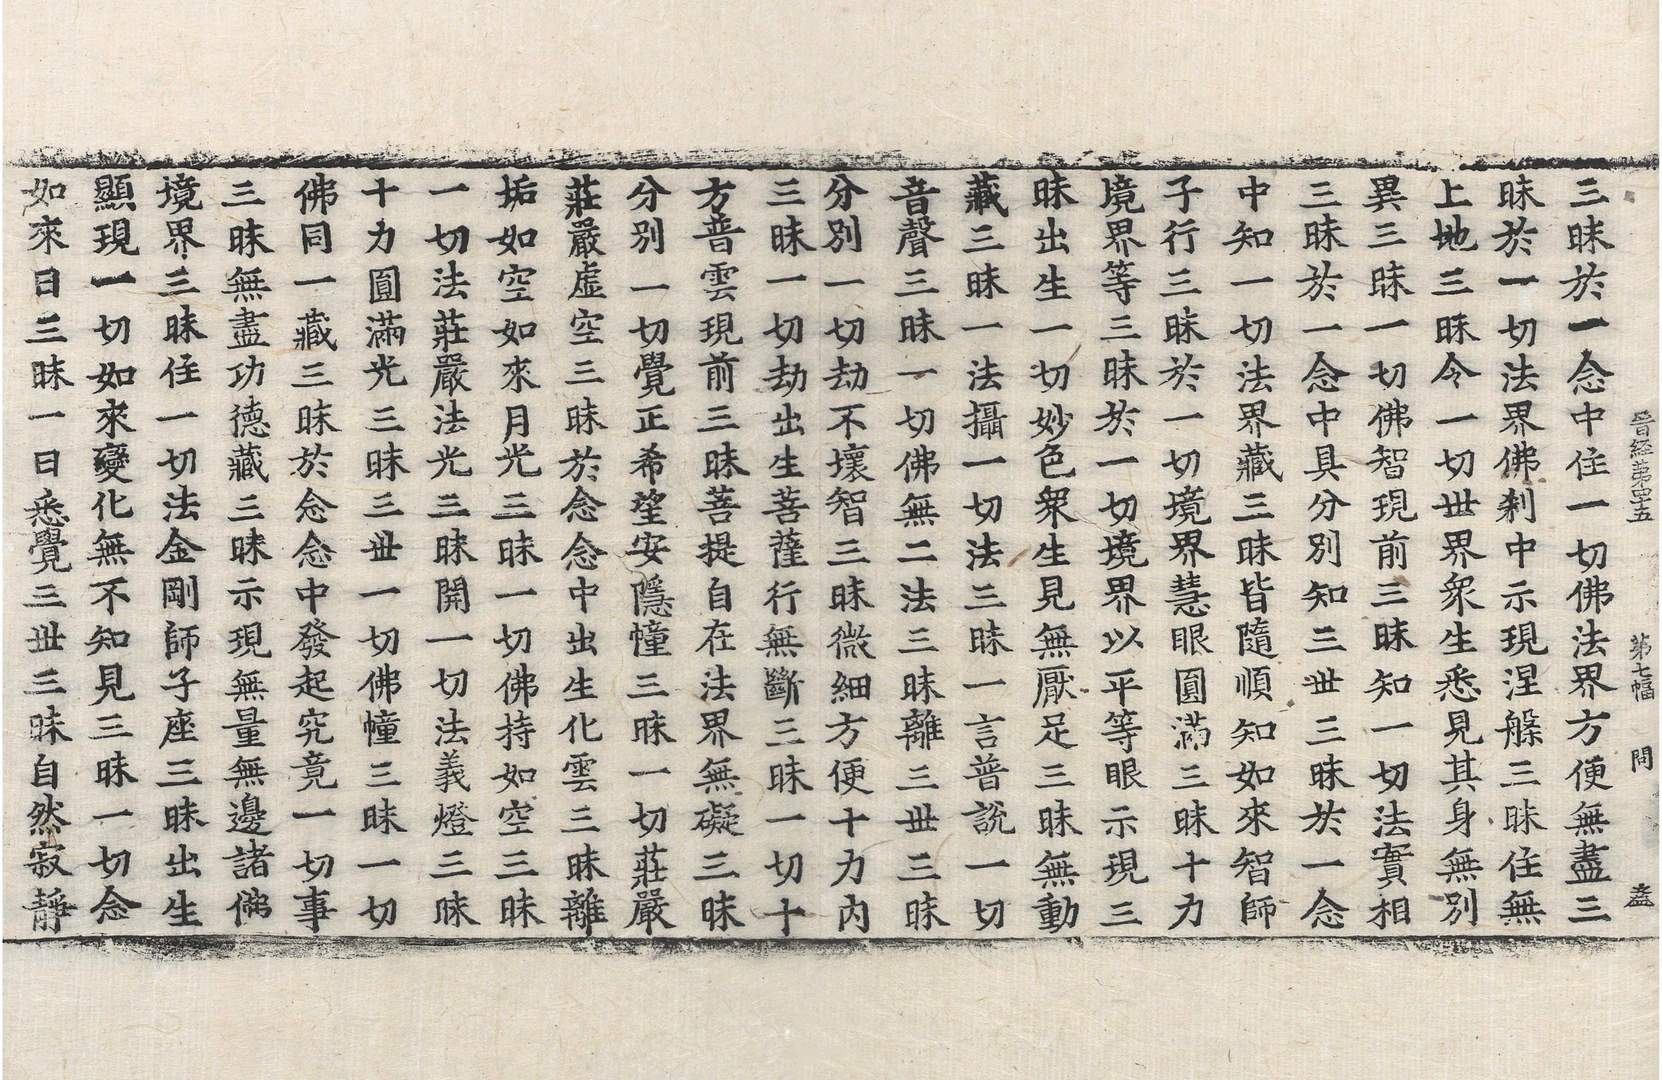 晋経第四十五　第七幅　問　盎
三昧於一念中住一切佛法界方便無盡三
昧於一切法界佛刹中示現涅槃三昧住無
上地三昧令一切世界衆生悉見其身無別
異三昧一切佛智現前三昧知一切法實相
三昧於一念中具分別知三世三昧於一念
中知一切法界藏三昧皆隨順知如來智師
子行三昧於一切境界慧眼圓滿三昧十力
境界等三昧於一切境界以平等眼示現三
昧出生一切妙色衆生見無厭足三昧無動
藏三昧一法攝一切法三昧一言普說一切
音聲三昧一切佛無二法三昧離三世三昧
分別一切劫不壞智三昧微細方便十力內
三昧一切劫出生菩薩行無斷三昧一切十
方普雲現前三昧菩提自在法界無礙三昧
分別一切覺正希望安隱幢三昧一切莊嚴
莊嚴虛空三昧於念念中出生化雲三昧離
垢如空如來月光三昧一切佛持如空三昧
一切法莊嚴法光三昧開一切法義燈三昧
十力圓滿光三昧三世一切佛幢三昧一切
佛同一藏三昧於念念中發起究竟一切事
三昧無盡功德藏三昧示現無量無邊諸佛
境界三昧住一切法金剛師子座三昧出生
顯現一切如來變化無不知見三昧一切念
如來日三昧一日悉覺三世三昧自然寂靜